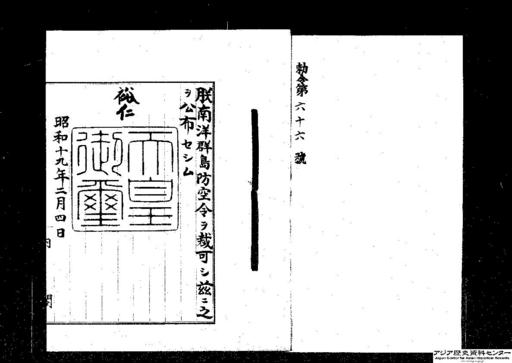 勅令第六十六號
朕南洋群島防空令ヲ裁可シ茲ニ之
ヲ公布セシム
裕仁
天皇御璽
昭和十九年二月四日
内閣
アジア歴史資料センター
Japan Center for Asian Historical Records